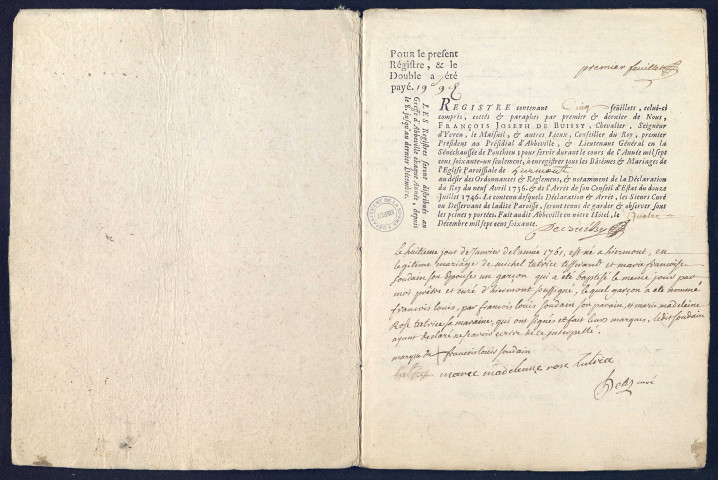 POUR le present
Régistre, & le
Double a été
payé.
premier feuillet
LES Registres seront distribués au
Greffe d'Abbeville chaque Année, depuis
le 8. jusqu'au dernier Décembre.
REGISTRE contenant Cinq feüillets, celui-ci
compris, cottés & paraphés par premier & dernier de Nous,
FRANÇOIS JOSEPH DE BUISSY, Chevalier, Seigneur
d'Yvren, le Maisnil, & autres Lieux, Conseiller du Roy, premier
Président au Présidial d'Abbeville, & Lieutenant Général en la
Sénéchaussée de Ponthieu; pour servir durant le cours de l'Année mil sept
cens soixante-un seulement, à enregistrer tous les Batêmes & Mariages de
l'Eglise Paroissiale de hiermont
au désir des Ordonnances & Reglemens, & notamment de la Déclaration
du Roy du neuf Avril 1736. & de l'Arrêt de son Conseil d'Estat du douze
Juillet 1746. Le contenu desquels Déclaration & Arrêt, les Sieurs Curé
ou Desservant de ladite Paroisse, seront tenus de garder & observer sous
les peines y portées. Fait audit Abbeville en notre Hôtel, le quatre
Décembre mil sept cens soixante.
De Buissy
le huitieme jour de Janvier de l'année 1761, est né a hiermont, en
legitime mariage de michel tulvice tisserant et marie françoise
soudain son Epouse un garçon qui a été baptisé le meme jour par
moi prêtre et curé d'hiermont soussigné, lequel garçon a été nommé
françois louis, par françois louis soudain son parain, et marie madeleine
Rose tulvice sa maraine, qui ont signés et fait leurs marques, ledit soudain
ayant declaré ne scavoir ecrire de ce interpellé.
marque de + francois louis soudain
marie madelenne rose tulvice
curé